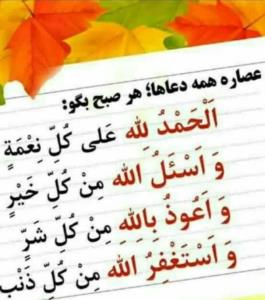 عصاره همه دعاها؛ هر صبح بگو:
اَلْحَمْدُ لِلّهِ عَلی کُلِّ نِعْمَةٍ
وَ اَسْئَلُ اللهَ مِنْ کُلِّ خَیْرٍ
وَ اَعُوذُ بِاللهِ مِنْ کُلِّ شَرٍّ
وَ اَسْتَغْفِرُ اللهَ مِنْ کُلِّ ذَنْبٍ